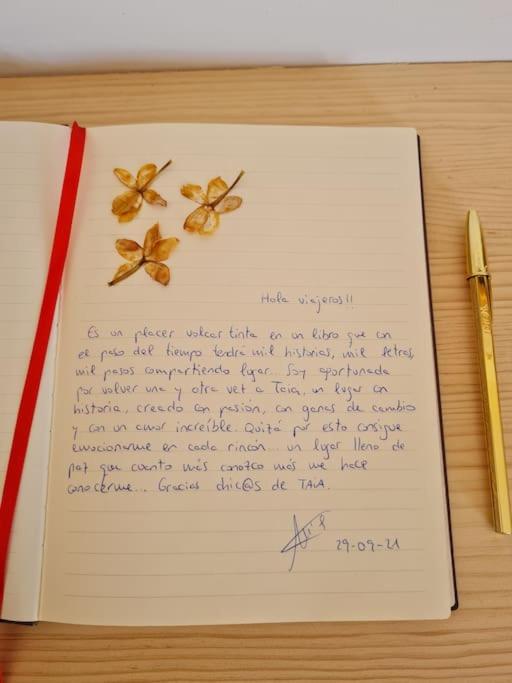 Hola viajeros!!
Es un placer volcar tinta en un libro que con
el paso del tiempo tendrá mil historias, mil letras,
mil pasos compartiendo lugar... Soy afortunada
por volver una y otra vez a Taia, un lugar con
historia, creado con pasión, con ganas de cambio
y con un amor increíble. Quizá por esto consigue
emocionarme en cada rincón... un lugar lleno de
paz que cuanto más conozco más me hace
conocerme... Gracias chic@s de TAIA.
29-09-21